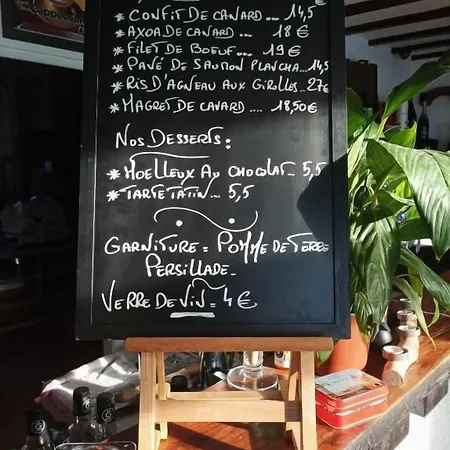 Cappuccino
* CONFIT DE CANARD.... 14,5€
* AXOA DE CANARD ... 18 €
* FILET DE BOEUF... 19 €
* PAVÉ DE SAUMON PLANCHA...14,5
* RIS D'AGNEAU AUX GIROLLES..27€
* MAGRET DE CANARD .... 18,50€
NOS DESSERTS:
* MOELLEUX AU CHOCOLAT... 5,5
* TARTE TATIN... 5,5
GARNITURE = POMME DE TERRE
PERSILLADE_
VERRE DE VIN = 4 €